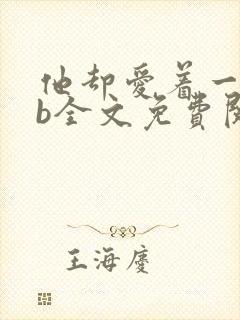 他却爱着一
b全文免费阅
王海庆